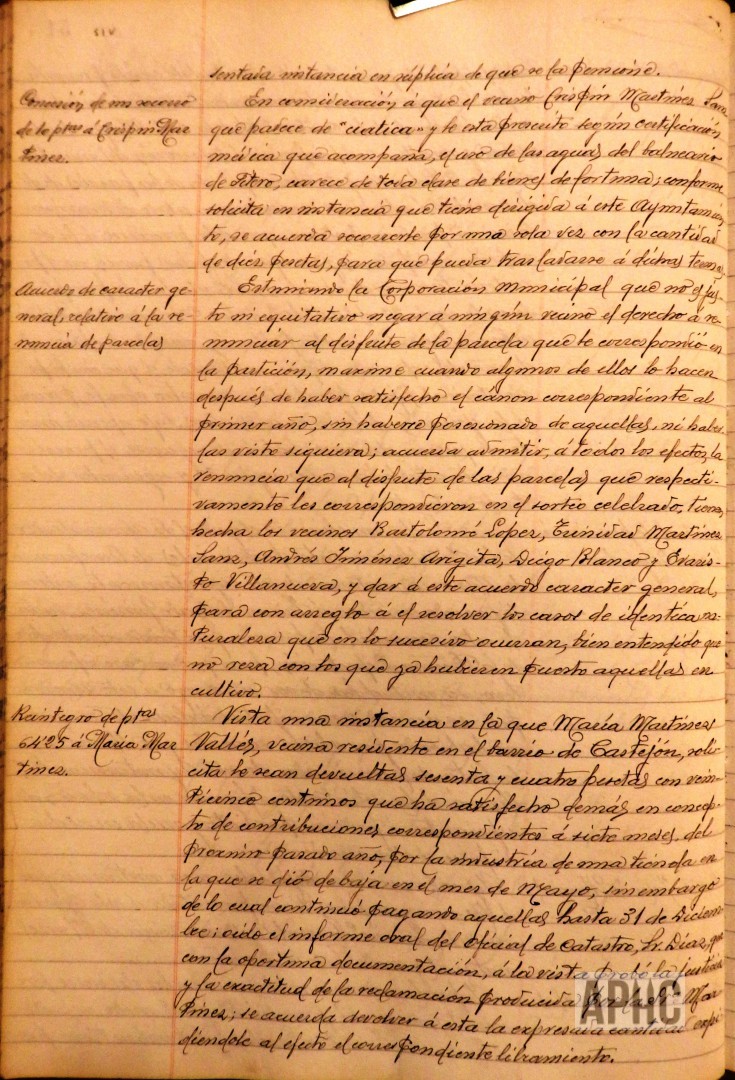 sentada instancia en súplica de que se la pensione.
Concesión de un socorro
de 10 ptas á Crispín Mar
tinez.
En consideración á que el vecino Crispín Martínez Sanz
que padece de "ciatica" y le está prescrito según certificación
médica que acompaña, el uso de las aguas del balneario
de Fitero, carece de toda clase de bienes de fortuna; conforme
solicita en instancia que tiene dirigida á este Ayuntamien
to, se acuerda socorrerle por una sola vez con la cantidad
de diez pesetas, para que pueda trasladarse á dichas termas.
Acuerdo de caracter ge-
neral relativo á la re-
nuncia de parcelas
Estimando la Corporación municipal que no es jus
to ni equitativo negar á ningún vecino el derecho á re-
nunciar al disfrute de la parcela que le correspondió en
la partición, maxime cuando algunos de ellos lo hacen
después de haber satisfecho el cánon correspondiente al
primer año, sin haberse posesionado de aquellas, ni haber
las visto siquiera; acuerda admitir, á todos los efectos, la
renuncia que al disfrute de las parcelas que respecti-
vamente les correspondieron en el sorteo celebrado, tienen
hecha los vecinos Bartolomé Lopez, Trinidad Martínez
Sanz, Andrés Jiménez Arigita, Diego Blanco y Evaris-
to Villanueva, y dar á este acuerdo caracter general,
para con arreglo á el resolver los casos de identica na-
turaleza que en lo sucesivo ocurran, bien entendido que
no reza con los que ya hubieren puesto aquellas en
cultivo.
Reintegro de ptas
64'25 á Maria Mar
tinez.
Vista una instancia en la que María Martínez
Vallés, vecina residente en el barrio de Castejón, soli-
cita le sean devueltas sesenta y cuatro pesetas con vein-
ticinco centimos que ha satisfecho demás en concep-
to de contribuciones correspondientes á siete meses del
proximo pasado año, por la industria de una tienda en
la que se dió de baja en el mes de Mayo, sin embargo
de lo cual continuó pagando aquellas hasta 31 de Diciem
bre; oido el informe oral del oficial de Catastro, Sr. Diaz, que
con la oportuna documentación, á la vista probó la justicia
y la exactitud de la reclamación producida Mar
tinez; se acuerda devolver á esta la expresada cantidad expi
diendole al efecto el correspondiente libramiento.
APHC